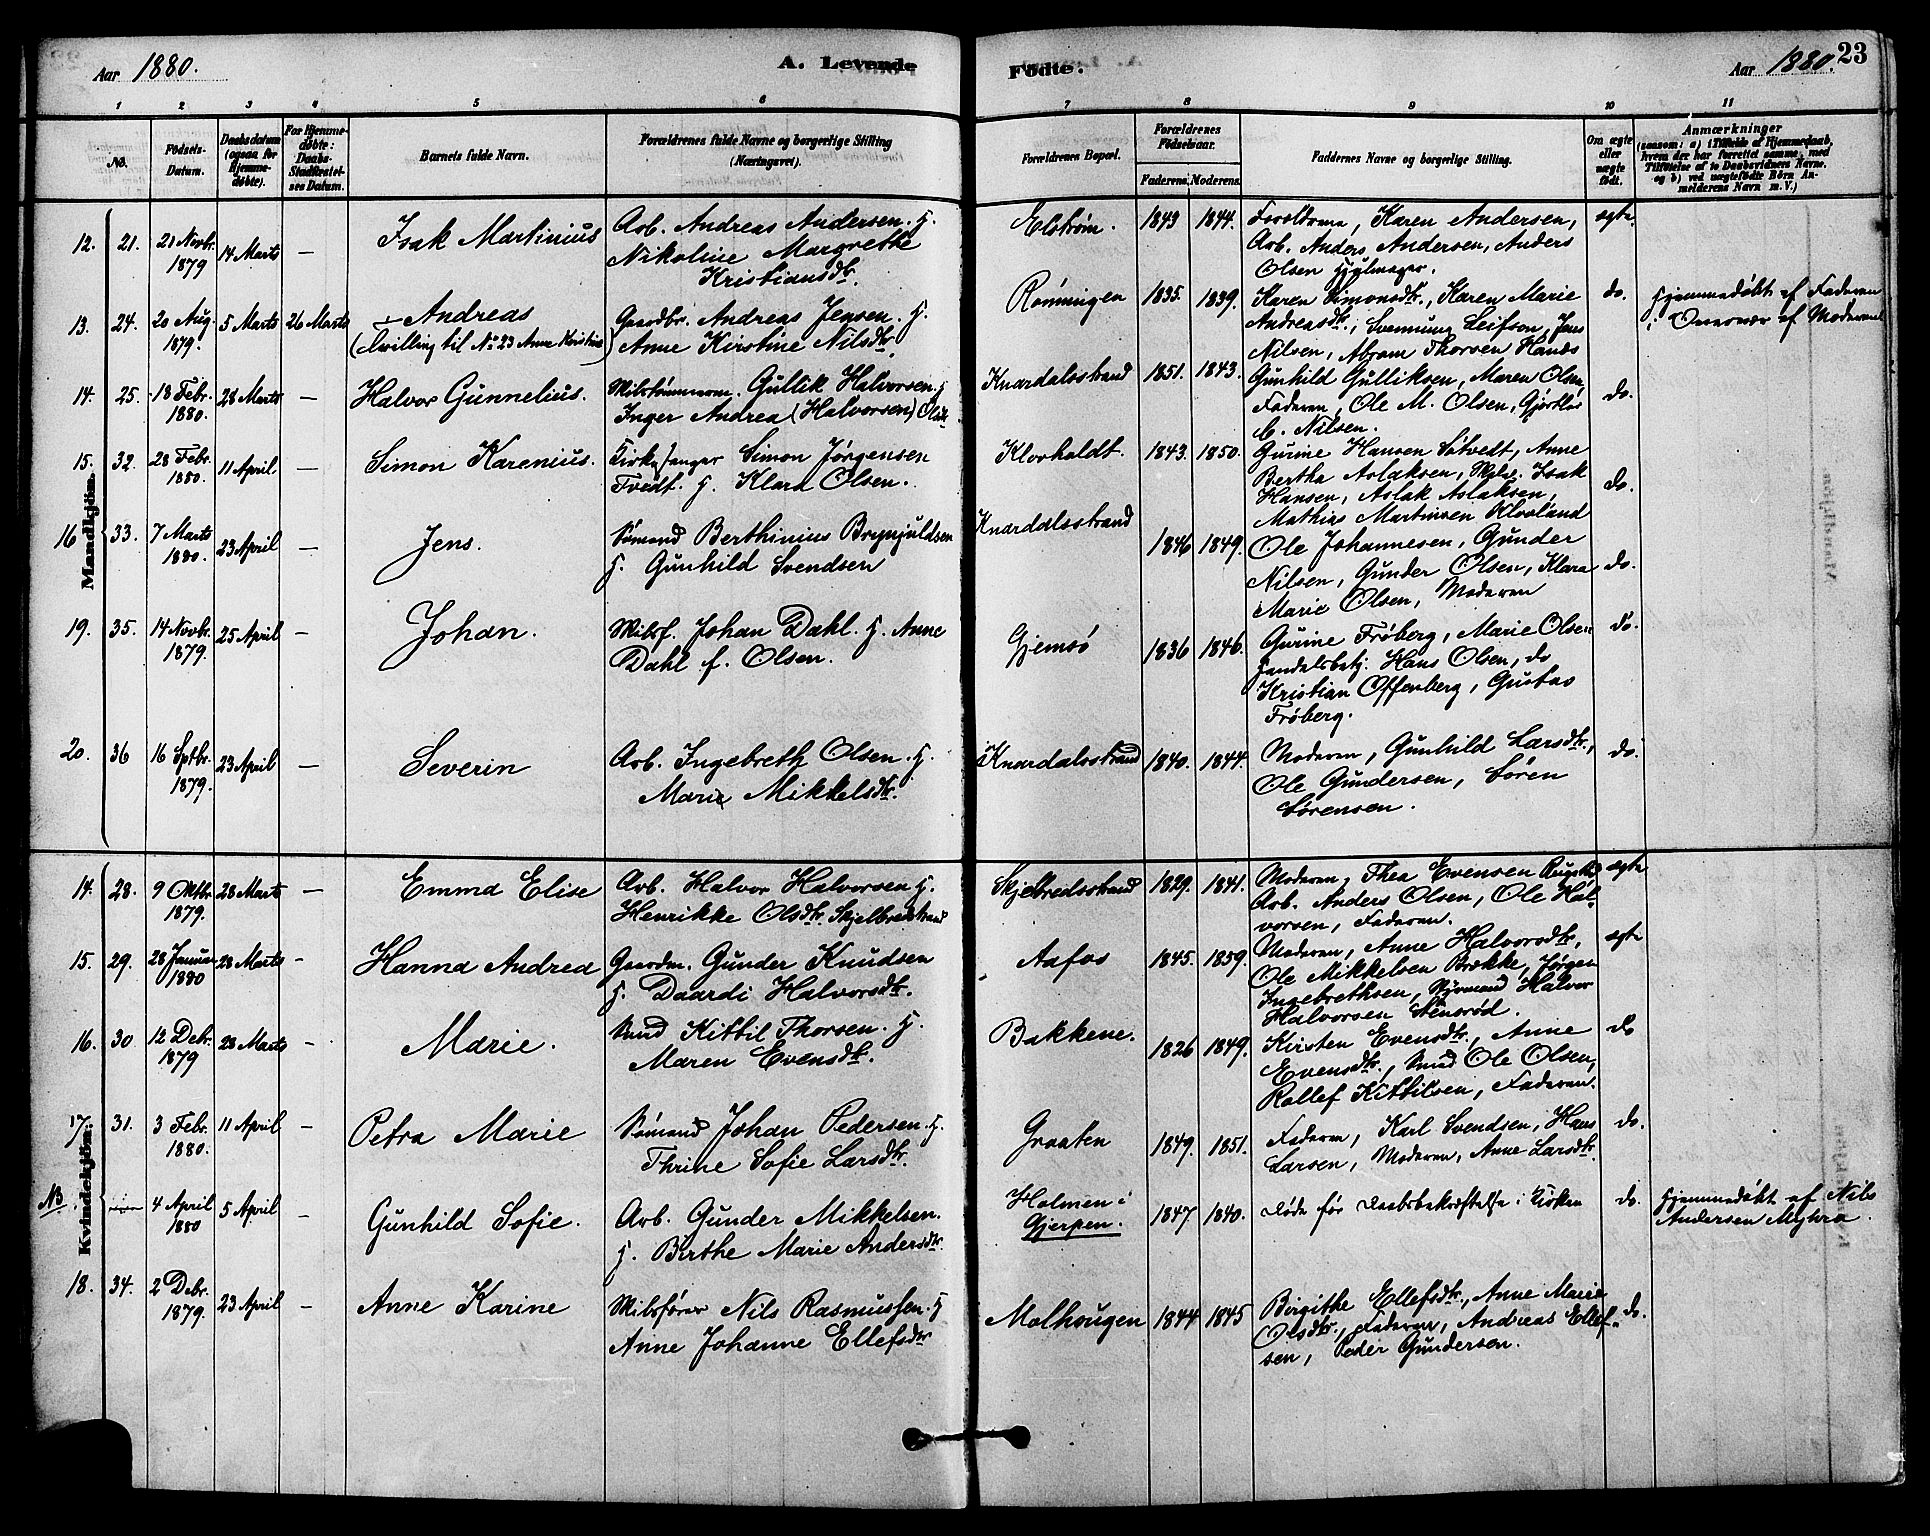 Aar 1880.
A. Levende
Fødte.
Aar 1880. 23
1 2 3 4 5 6 7 8 9 10 11
No.
Fødsels-Datum.
Daabsdatum (ogsaa for Hjemmedøbte).
For Hjemmedøbte: Daabs-Stadfæstelses Datum.
Barnets fulde Navn.
Forældrenes fulde Navne og borgerlige Stilling (Næringsvei).
Forældrenes Bopæl.
Forældrenes Fødselsaar.
Faderens. Moderens.
Faddernes Navne og borgerlige Stilling.
Om ægte eller uægte født.
Anmærkninger
(saasom: a) i Tilfælde af Hjemmedaab, hvem der har forrettet samme, med Tilføielse af to Daabsvidners Navne, og b) ved uægtefødte Børn Anmelderens Navn m. V.)
Mandkjøn.
12. 21. 21 Novbr. 1879 14 Marts — Isak Martinius
Arb. Andreas Andersen. H.
Nikoline Margrethe
Kristiansdtr.
Elstrøm. 1843 1844.
Forældrene, Karen Andersen,
Arb. Anders Andersen, Anders
Olsen Hjulmager.
ægte
13. 24. 20 Aug. 1879. 5 Marts 26 Marts Andreas
(Tvilling til No 23 Anne Kirstine)
Gaardbr. Andreas Jensen. H.
Anne Kirstine Nilsdtr.
Rønningen 1835. 1839.
Karen Simonsdtr., Karen Marie
Andreasdtr., Svennung Leifson, Jens
Nilsen, Abram Thorsen Hanås
do.
Hjemmedøbt af Faderen
i Overvær af Moderen
14. 25. 18 Febr. 1880. 28 Marts — Halvor Gunnelius.
Gullik Halvorsen. H
Inger Andrea (Halvorsen) Olsdtr
Knardalsstrand 1851. 1843.
Gunhild Gulliksen, Maren Olsen,
Faderen, Ole M. Olsen,
C. Nilsen.
do.
15. 32. 28 Febr. 1880 11 April — Simon Karenius.
Kirkesanger Simon Jørgensen
Tvedt. H. Klara Olsen.
Klovholdt. 1843. 1850.
Gurine Hansen Søtvedt, Anne
Bertha Aslaksen, Isak
Hansen, Aslak Aslaksen,
Mathias Martinsen Klovland
do.
16 33. 7 Marts 1880. 23 April — Jens.
Sømand Berthinius Brynjuldsen
H. Gunhild Svendsen
Knardalsstrand 1846 1849.
Ole Johannesen, Gunder
Nilsen, Gunder Olsen, Klara
Marie Olsen, Moderen
do.
19. 35. 14 Novbr. 1879. 25 April — Johan.
Skibsf. Johan Dahl. H. Anne
Dahl f. Olsen.
Gjemsø 1836 1846.
Gurine Frøberg, Marie Olsen
Handelsbetj. Hans Olsen, do
Kristian Offenberg, Gustav
Frøberg.
do.
20. 36 16 Sptbr. 1879. 23 April — Severin
Arb. Ingebreth Olsen. H.
Marie Mikkelsdtr.
Knardalsstrand 1840. 1844.
Moderen, Gunhild Larsdtr.,
Ole Gundersen, Søren
Sørensen.
do.
Kvindekjøn.
14. 28. 9 Oktbr. 1879. 28 Marts — Emma Elise
Arb. Halvor Halvorsen H.
Henrikke Olsdtr. Skjelbredstrand
Skjelbredsstrand 1829. 1841.
Moderen, Thea Evensen
Arb. Anders Olsen, Ole Hal-
vorsen, Faderen.
ægte
15. 29. 28 Januar 1880 28 Marts — Hanna Andrea
Gaardm. Gunder Knudsen
H. Daardi Halvorsdtr.
Aafos 1845. 1859.
Moderen, Anne Halvorsdtr.,
Ole Mikkelsen Brække, Jørgen
Ingebrethsen, Styrmand Halvor
Halvorsen Stensrød.
ægte
16. 30 12 Debr. 1879 28 Marts — Marie.
Smd Kittil Thorsen. H.
Maren Evensdtr.
Bakkene. 1826 1849.
Kirsten Evensdtr., Anne
Evensdtr., Smd Ole Olsen,
Rollef Kittilsen, Faderen.
do
17. 31. 3 Febr. 1880. 11 April — Petra Marie
Sømand Johan Pedersen. H.
Thrine Sofie Larsdtr.
Graaten 1849. 1851.
Faderen, Karl Svendsen, Hans
Larsen, Moderen, Anne Larsdtr.
do.
NB. 4 April 1880 5 April — Gunhild Sofie.
Arb. Gunder Mikkelsen.
H. Birthe Marie Andersdtr.
Holmen i
Gjerpen. 1847. 1840.
Døde før Daabsbekræftelse i Kirken
do.
Hjemmedøbt af Nils
Andersen Myhra.
18. 34. 2 Debr. 1879. 23 April — Anne Karine
Skibsfører Nils Rasmussen. H
Anne Johanne Ellefsdtr
Molhougen 1844 1845
Birgithe Ellefsdtr., Anne Marie
Olsdtr., Faderen, Andreas Ellef-
sen, Peder Gundersen.
do.